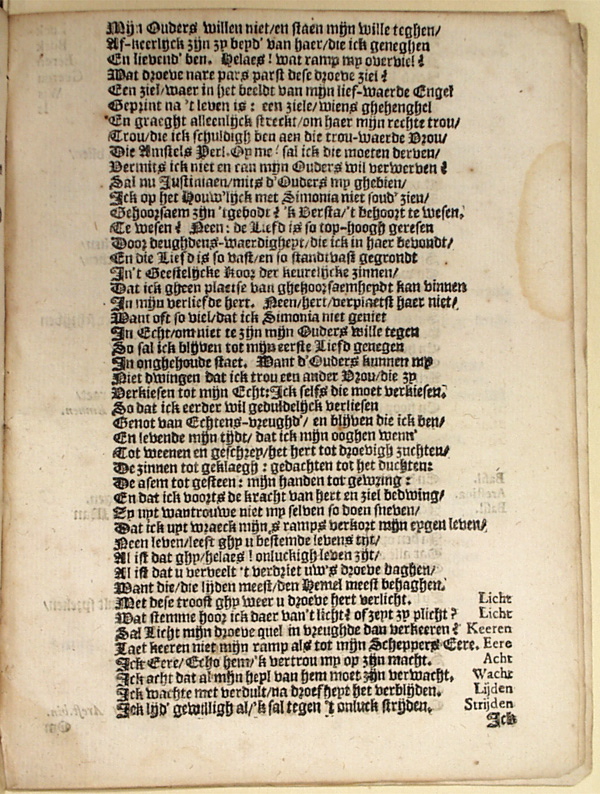 Mijn Ouders willen niet/en staen mijn wille teghen/
Af-keerlijck zijn zy beyd' van haer/die ick geneghen
En lievend' ben. Helaes! wat ramp my overviel?
Wat droeve nare pars parst dese droeve ziel?
Een ziel/waer in het beeldt van mijn lief-waerde Engel
Geprint na 't leven is: een ziele/wiens ghehenghel
En graeght alleenlijck streckt/om haer mijn rechte trou/
Trou/die ick schuldigh ben aen die trou-waerde Vrou/
Die Amstels Perl. Oy me! sal ick die moeten derven/
Vermits ick niet en can mijn Ouders wil verwerven?
Sal nu Justiniaen/mits d'Ouders my ghebien/
Ick op het Houw'lijck met Simonia niet soud' zien/
Gehoorsaem zijn 'tgebodt? 'k Versta/'t behoort te wesen.
Te wesen? Neen: de Liefd is so top-hoogh geresen
Door deughdens-waerdigheyt/die ick in haer bevondt/
En die Liefd is so vast/en so standtvast gegrondt
In't Geestelijcke Koor der keurelijcke zinnen/
Dat ick gheen plaetse van ghehoorsaemheydt kan vinnen
In mijn verliefde hert. Neen/hert/verplaetst haer niet/
Want oft so viel/dat ick Simonia niet geniet
In Echt/om niet te zijn mijn Ouders wille tegen
So sal ick blijven tot mijn eerste Liefd genegen
In onghehoude staet. Want d'Ouders kunnen my
Niet dwingen dat ick trou een ander Vrou/die zy
Verkiesen tot mijn Echt: Ick selfs die moet verkiesen.
So dat ick eerder wil geduldelijck verliesen
Genot van Echtens-vreughd'/ en blijven die ick ben/
En levende mijn tijdt/ dat ick mijn ooghen wenn'
Tot weenen en geschrey/het hert tot droevigh zuchten/
De zinnen tot geklaegh: gedachten tot het duchten:
De asem tot gesteen: mijn handen tot gewring:
En dat ick voorts de kracht van hert en ziel bedwing/
Ey uyt wantrouwe niet my selven so doen sneven/
Dat ick uyt wraeck mijns ramps verkort mijn eygen leven/
Neen leven/leeft ghy u bestemde levens tijt/
Al ist dat ghy/helaes! onluckigh leven zijt/
Al ist dat u verveelt 't verdriet uw's droeve daghen/
Want die/die lijden meest/den Hemel meest behaghen.
Met dese troost ghy weer u droeve hert verlicht. Licht
Wat stemme hoor ick daer van't licht? of zeyt zy plicht? Licht
Sal Licht mijn droeve quel in vreughde dan verkeeren? Keeren
Laet keeren niet mijn ramp als tot mijn Scheppers Eere. Eere
Ick Eere/Echo hem/'k vertrou my op zijn macht. Acht
Ick acht dat al mijn heyl van hem moet zijn verwacht. Wacht
Ick wachte met verdult/na droefheyt het verblijden. Lijden
Ick lijd' gewilligh al/'k sal tegen 't onluck strijden. Strijden
Ick